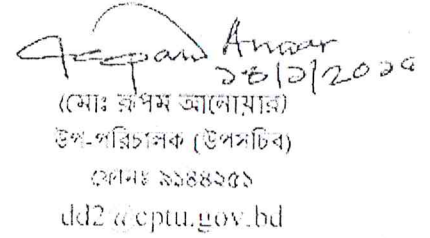 Anwar
(মোঃ রূপম আনোয়ার)
উপ-পরিচালক (উপসচিব)
ফোনঃ ৯১৪৪২৫১
dd2@cptu.gov.bd